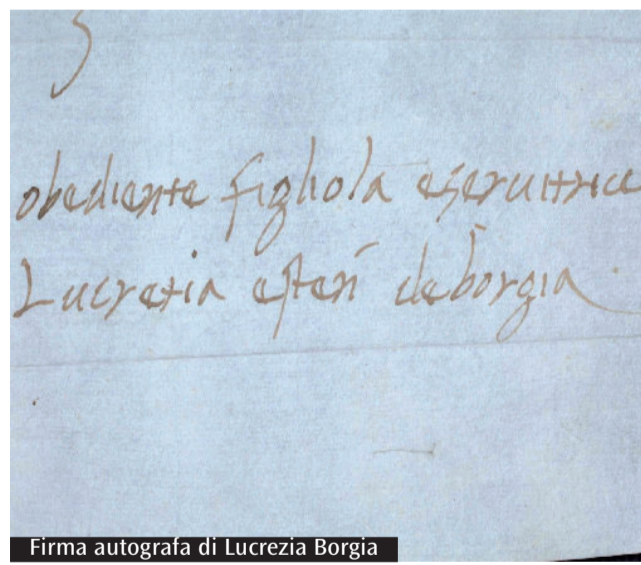 obediente figliola eseruitrice
Lucretia esten̄ deborgia.
Firma autografa di Lucrezia Borgia